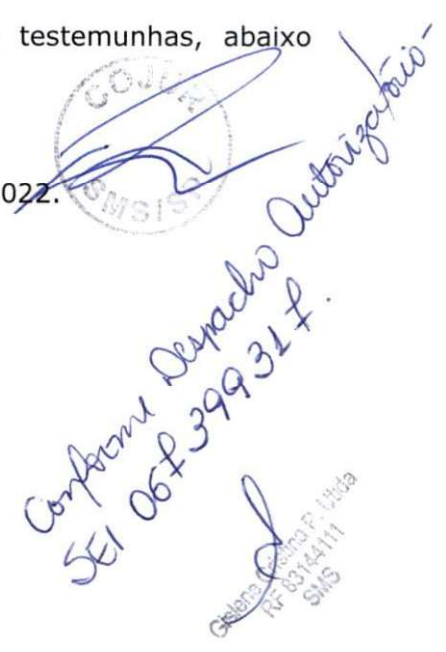 testemunhas, abaixo
COJUR
022.
SMS/SP
Conforme Despacho Autorizatório-
SEI 067399317.
Cristina P.
RF 83144111
SMS